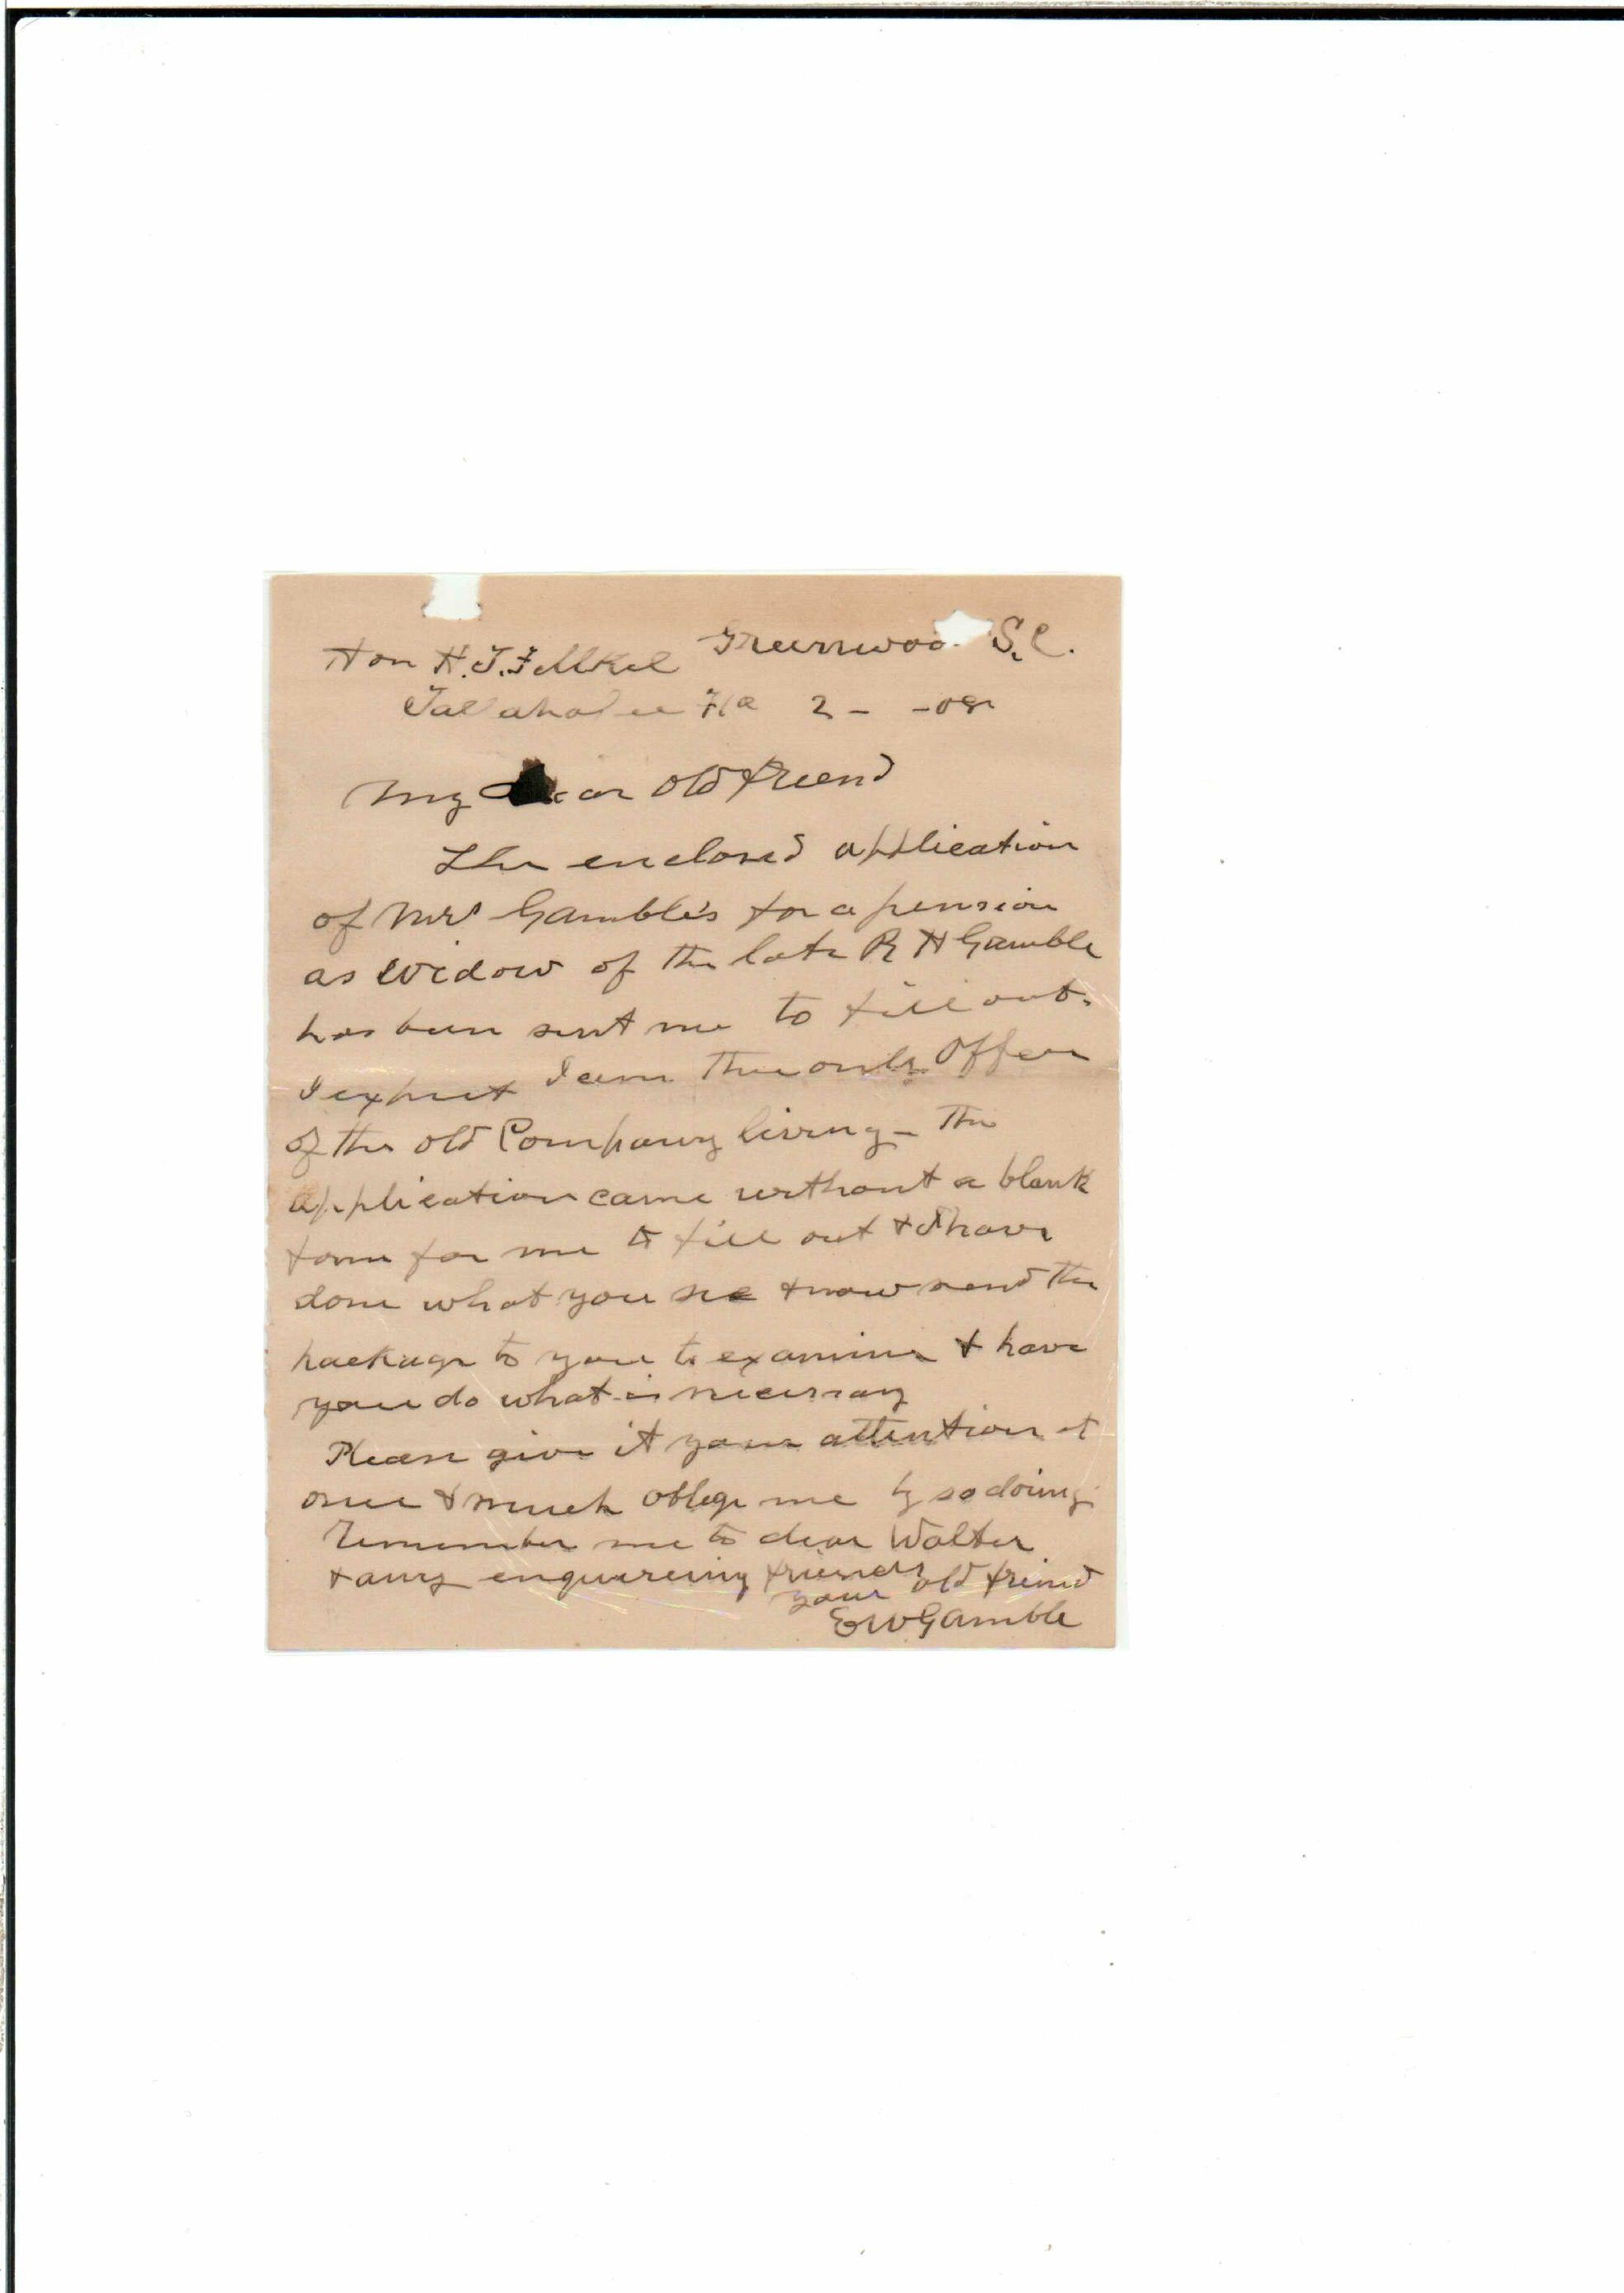 Greenwood S.C.
Hon H. T. Felkel
Tallahassee Fla 2 - -08
My Dear Old friend
The enclosed application
of Mrs Gamble's for a pension
as Widow of the late R H Gamble
has been sent me to fill out.
I expect I am the only Officer
of the old Company living - The
application came without a blank
form for me to fill out & I have
done what you see & now send the
package to you to examine & have
you do what is necessary
Please give it your attention at
once & much oblige me by so doing
Remember me to dear Walter
& any enquireing friends
your old friend
E W Gamble